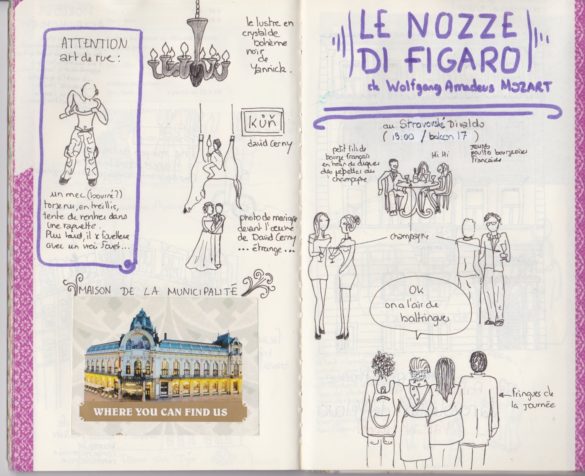 ATTENTION
art de rue :
un mec (bourré?)
torse nu, en treillis,
tente de rentrer dans
une raquette.
Plus tard, il se
avec un vrai
le lustre en
crystal de
bohème
noir
de
Yannick.
KŮŇ
david Cerny
photo de mariage
devant l'œuvre
de David Cerny
... étrange ...
MAISON DE LA MUNICIPALITÉ
WHERE YOU CAN FIND US
LE NOZZE
DI FIGARO
de Wolfgang Amadeus MOZART
au Stavovské Divadlo
(19:00 / balcon 17)
petit fils de
bourg français
en noir de
des pepettes au
champagne
Hi Hi
jeunes
bourgeoises
francaises
champagne
Ok
on a l'air de
baltringues
fringues de
la journée